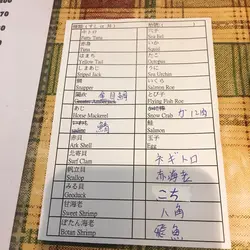 中トロ 穴子
Fatty Tuna Sea Eel
赤身 いか
Tuna Squid
はまち たこ
Yellow Tail Octopus
しまあじ うに
Striped Jack Sea Urchin
鯛 いくら
Snapper Salmon Roe
金目鯛 とび子
Greater Amberjack Flying Fish Roe
あじ
Horse Mackerel Snow Crab
鯖 鮭
Salmon
赤貝 玉子
Ark Shell Egg
北寄貝 ネギトロ
Surf Clam
帆立貝 赤海老
Scallop
みる貝 こち
Geoduck
甘海老
Sweet Shrimp
ぼたん海老
Botan Shrimp